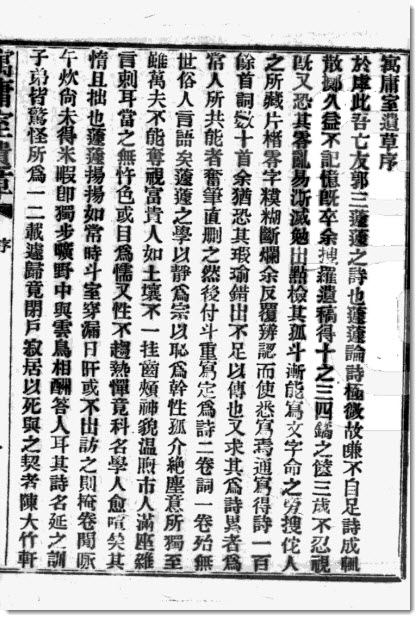 寓庸室遺草序
於虖此吾亡友郭三蘧蘧之詩也蘧蘧論詩極微故歉不自足詩成輒
散擲久益不記憶既卒余搜羅遺稿得十之三四鐍之篋三歲不忍視
既又恐其零亂易漸滅勉出點檢其孤斗漸能寫文字命之旁搜佗人
之所藏片楮零字糢糊斷爛余反覆辨認而使悉寫焉通寫得詩一百
餘首詞數十首余猶恐其瑕瑜錯出不足以傳也又求其為詩異者為
常人所共能者奮筆直刪之然後付斗重寫定為詩二卷詞一卷殆無
世俗人言語矣蘧蘧之學以靜為宗以恥為幹性孤介絕塵意所獨至
雖萬夫不能奪視富貴人如土壤不一挂齒頰神貌溫煦市人滿座雖
言刺耳當之無忤色或目為懦又性不趨熱憚竟科名學人愈喧矣其
惰且拙也蘧蘧揚揚如常時斗室穿漏日旰或不出訪之則掩卷閒眎
午炊尚未得米暇卽獨步曠野中與雲鳥相酬答人耳其詩名延之訓
子弟皆驚怪所為一二載遽歸竟閉戶寂居以死與之契者陳大竹軒
寓庸室遺草
序